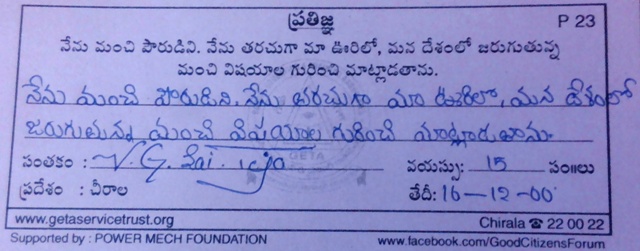 ప్రతిజ్ఞ P 23
నేను మంచి పౌరుడిని. నేను తరచుగా మా ఊరిలో, మన దేశంలో జరుగుతున్న
మంచి విషయాల గురించి మాట్లాడతాను.
నేను మంచి పౌరుడిని. నేను తరచుగా మా ఊరిలో, మన దేశంలో
జరుగుతున్న మంచి విషయాల గురించి మాట్లాడుతాను
సంతకం : V. G. Sai. వయస్సు: 15 సం॥లు
ప్రదేశం : చీరాల తేదీ: 16-12-00
www.getaservicetrust.org Chirala ☎ 22 00 22
Supported by : POWER MECH FOUNDATION www.facebook.com/GoodCitizensForum